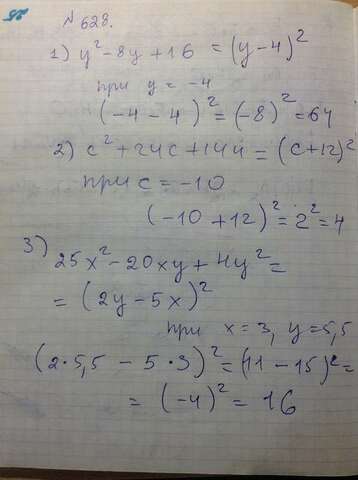 № 628.
1) y² - 8y + 16 = (y - 4)²
при y = -4
(-4 - 4)² = (-8)² = 64
2) c² + 24c + 144 = (c + 12)²
при c = -10
(-10 + 12)² = 2² = 4
3)
25x² - 20xy + 4y² =
= (2y - 5x)²
при x = 3, y = 5,5
(2·5,5 - 5·3)² = (11 - 15)² =
= (-4)² = 16